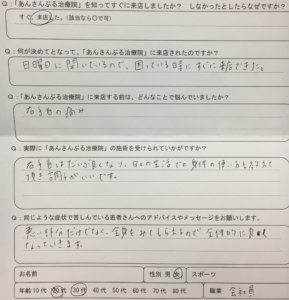 Q：「あんさんぶる治療院」を知ってすぐに来店しましたか？　しなかったとしたらなぜですか？
すぐ、来店した。（該当なら○で可）
Q：何が決めてとなって、「あんさんぶる治療院」に来店されたのですか？
日曜日に開いているので、困っている時にすぐに来店できた。
Q：「あんさんぶる治療院」に来店する前は、どんなことで悩んでいましたか？
右手首の痛み
Q：実際に「あんさんぶる治療院」の施術を受けられていかがですか？
右手首はだいぶ良くなり、日々の生活での身体の使い方も教えて
頂き調子がいいです。
Q：同じような症状で苦しんでいる患者さんへのアドバイスやメッセージをお願いします。
悪い所だけでなく、全身をみてもらえるので全体的に良く
なっていきます。
お名前　性別 男 女　スポーツ
年齢 10代 20代 30代 40代 50代 60代 70代 80代　職業　会社員